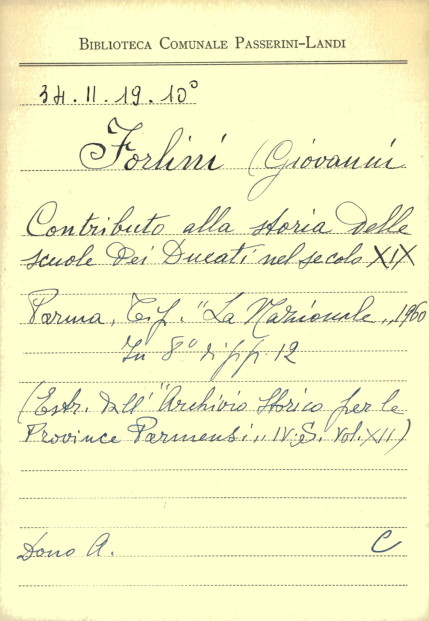 BIBLIOTECA COMUNALE PASSERINI-LANDI
34.II.19.10°
Forlini (Giovanni
Contributo alla storia delle
scuole dei Ducati nel secolo XIX
Parma, Tip. "La Nazionale,, 1960
In 8° di pp. 12
(Estr. dall'"Archivio Storico per le
Province Parmensi,, IV.S. Vol. XII)
Dono A. C